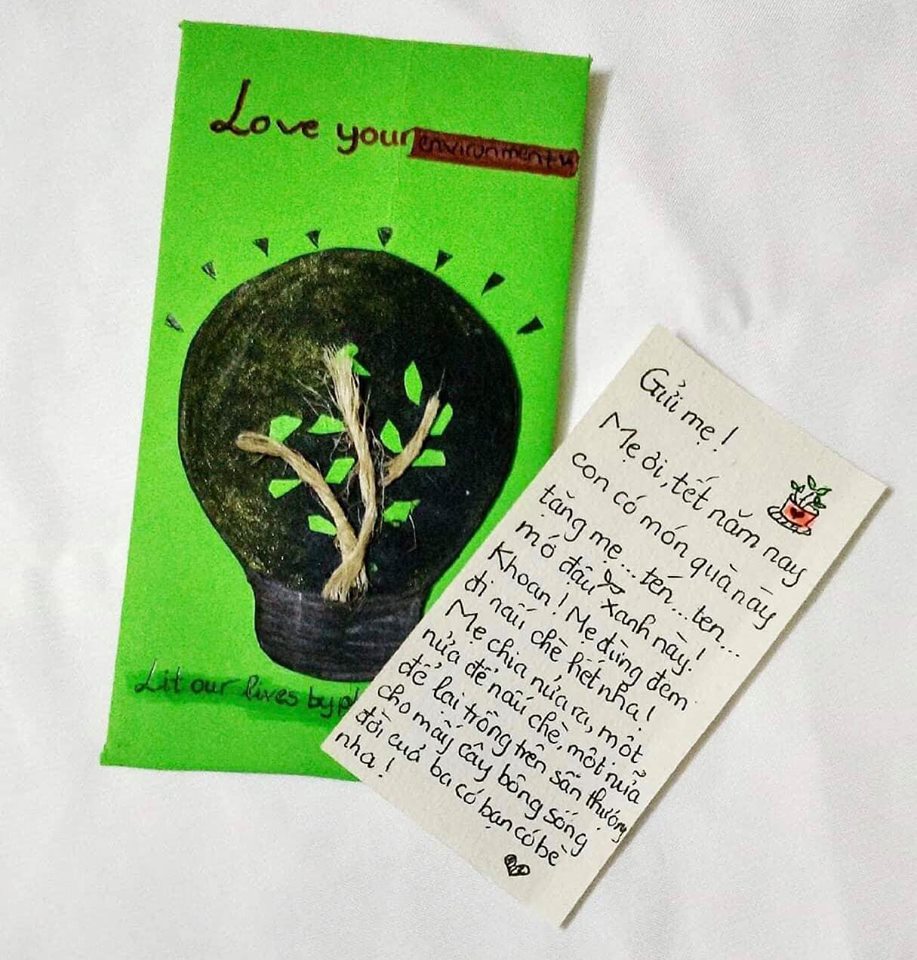 Love your environment
Lit our lives by
Gửi mẹ!
Mẹ ơi, tết năm nay
con có món quà này
tặng mẹ...tén...ten...
mớ đậu xanh này!
Khoan! Mẹ đừng đem
đi nấu chè hết nha!
Mẹ chia nửa ra, một
nửa để nấu chè, một nửa
để lại trồng trên sân thượng
cho mấy cây bông sống
đời cuả ba có bạn có bè
nha!